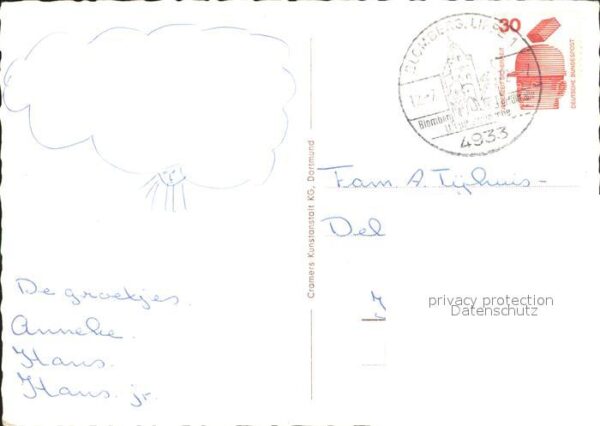 De groetjes.
Anneke.
Hans.
Hans. jr.
Cramers Kunstanstalt KG, Dortmund
BLOMBERG, LIPPE 1
Blomberg
4933
30
DEUTSCHE BUNDESPOST
Fam. A. Tijhuis-
Del
privacy protection
Datenschutz